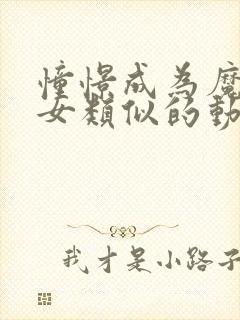 憧憬成為魔
女類似的動
我才是小路子